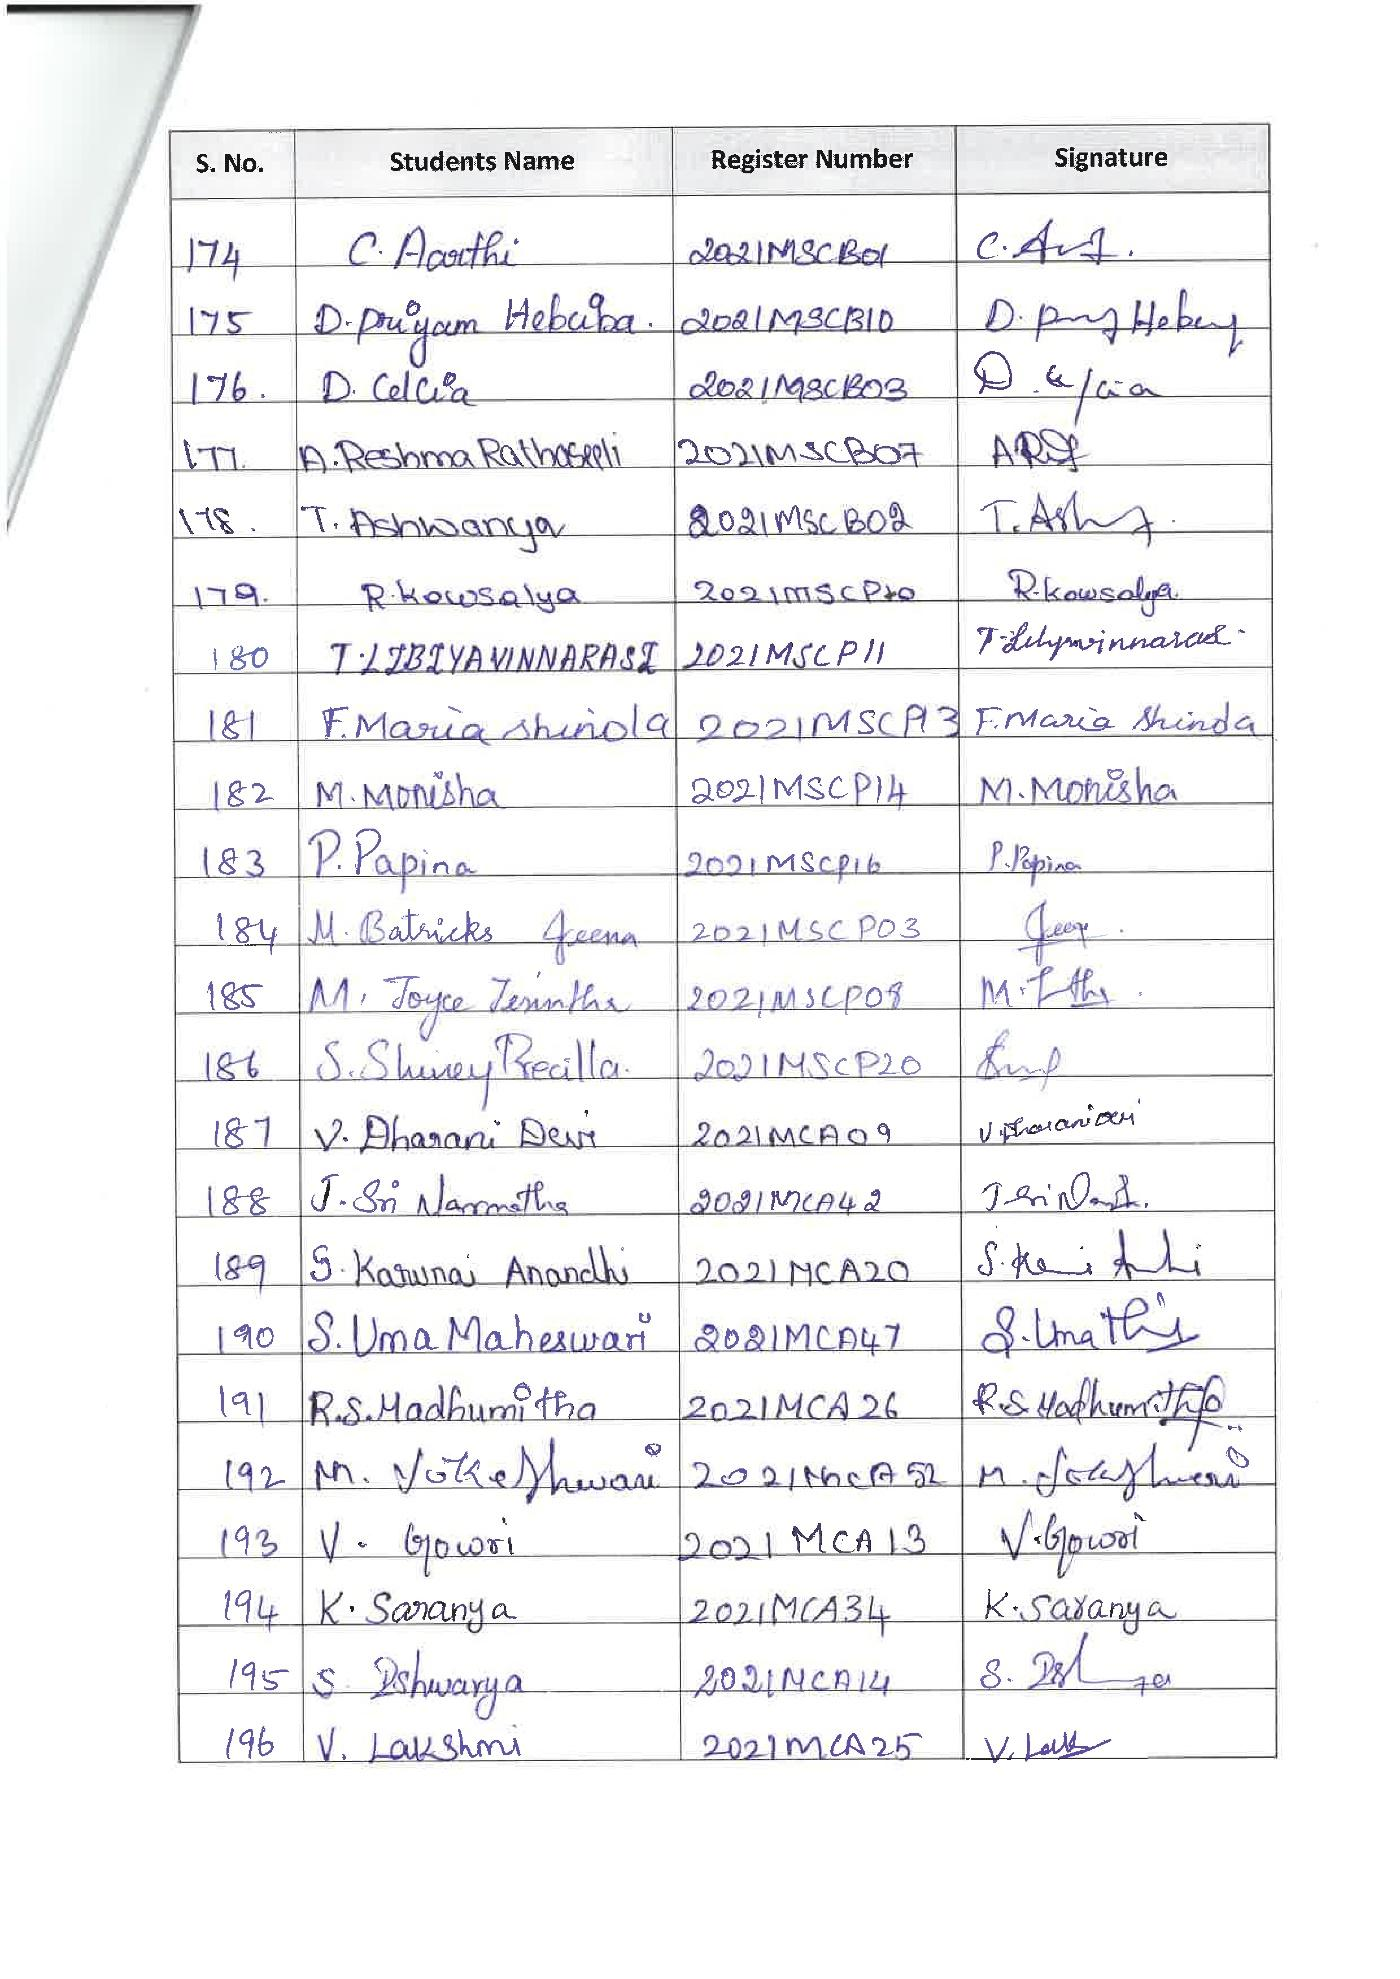 S. No. Students Name Register Number Signature
174 C. Aarthi 2021MSCB01 C.
175 D. Priyam Hebziba. 2021MSCB10 D.
176. D. Celcia 2021MSCB03 D. Celcia
177. A. Reshma 2021MSCB07
178. T. Ashwanya 2021MSCB02 T. Ash
179. R. Kowsalya 2021MSCP10 R. Kowsalya
180 T. LIBIYAVINNARASI 2021MSCP11
181 F. Maria Shinola 2021MSCA13 F. Maria Shinda
182 M. Monisha 2021MSCP14 M. Monisha
183 P. Papina 2021MSCP16 P. Papina
184 M. Batricks Jeena 2021MSCP03
185 M. Joyce 2021MSCP08 M.
186 S. Shiney Precilla. 2021MSCP20
187 V. Dharani Devi 2021MCA09 V. Dharani Devi
188 J. Sri Narmatha 2021MCA42 J Sri
189 S. Karunai Anandhi 2021MCA20 S.
190 S. Uma Maheswari 2021MCA47 S. Uma
191 R.S. Madhumitha 2021MCA26 R.S Madhumitha
192 M. Yokeshwari 2021MCA52 M. Yokeshwari
193 V. Gowri 2021MCA13 V. Gowri
194 K. Saranya 2021MCA34 K. Saranya
195 S Ishwarya 2021MCA14 S.
196 V. Lakshmi 2021MCA25 V. Lak